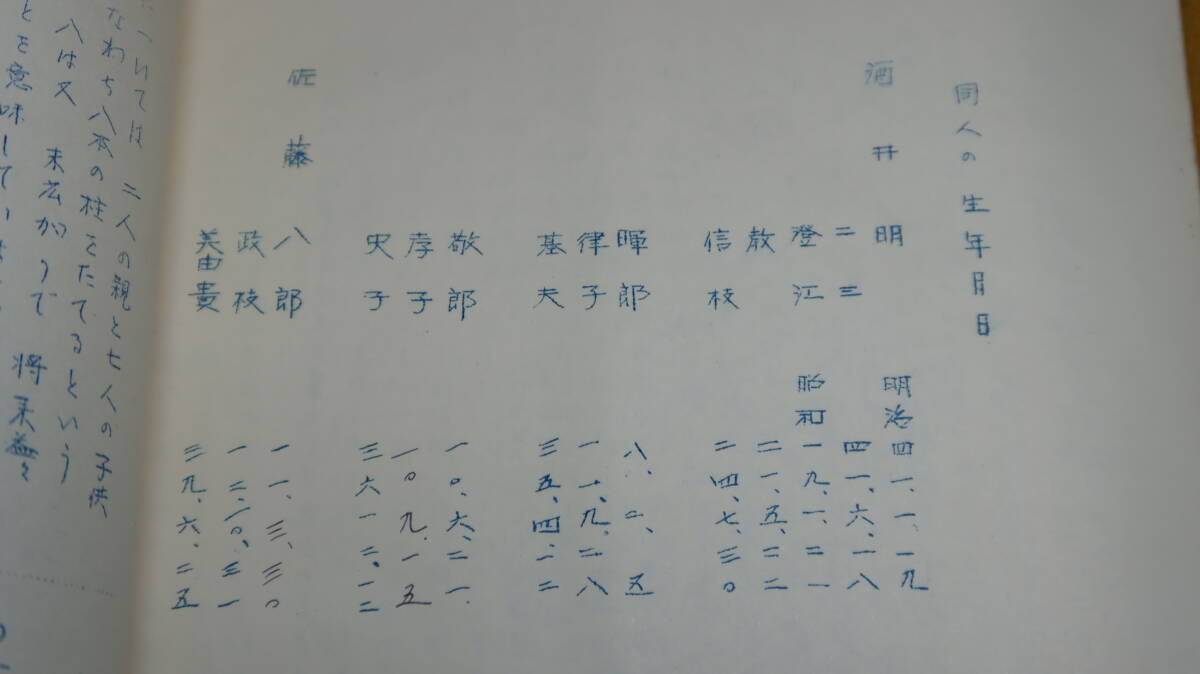 同人の生年月日
酒井 明 明治 四一、一、一九
二三 四一、六、一八
澄江 昭和 一九、一、二一
教 二一、五、二二
信枝 二四、七、三〇
暉郎 八、二、五
律子 一一、九、二八
基夫 三五、四、一二
敬郎 一〇、六、二一
孝子 一〇、九、一五
史子 三六一二、一二
佐藤 八郎 一一、三、三〇
政枝 一二、一〇、三一
美由貴 三九、六、二五
ついては 二人の親と七人の子供
なわち八本の柱をたてるという
八は又 末広がりで 将来益々
とを意味してい